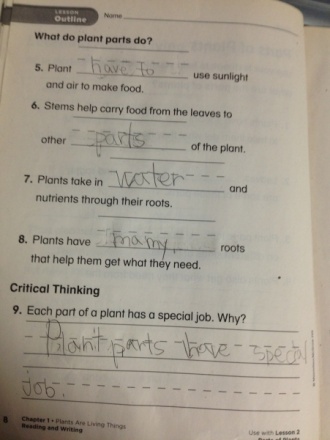 LESSON
Outline
Name
What do plant parts do?
5. Plant have to use sunlight
and air to make food.
6. Stems help carry food from the leaves to
other parts of the plant.
7. Plants take in water and
nutrients through their roots.
8. Plants have many, roots
that help them get what they need.
Critical Thinking
9. Each part of a plant has a special job. Why?
Plant parts have specal
job.
8 Chapter 1 • Plants Are Living Things
Reading and Writing
Use with Lesson 2
Parts of Plants